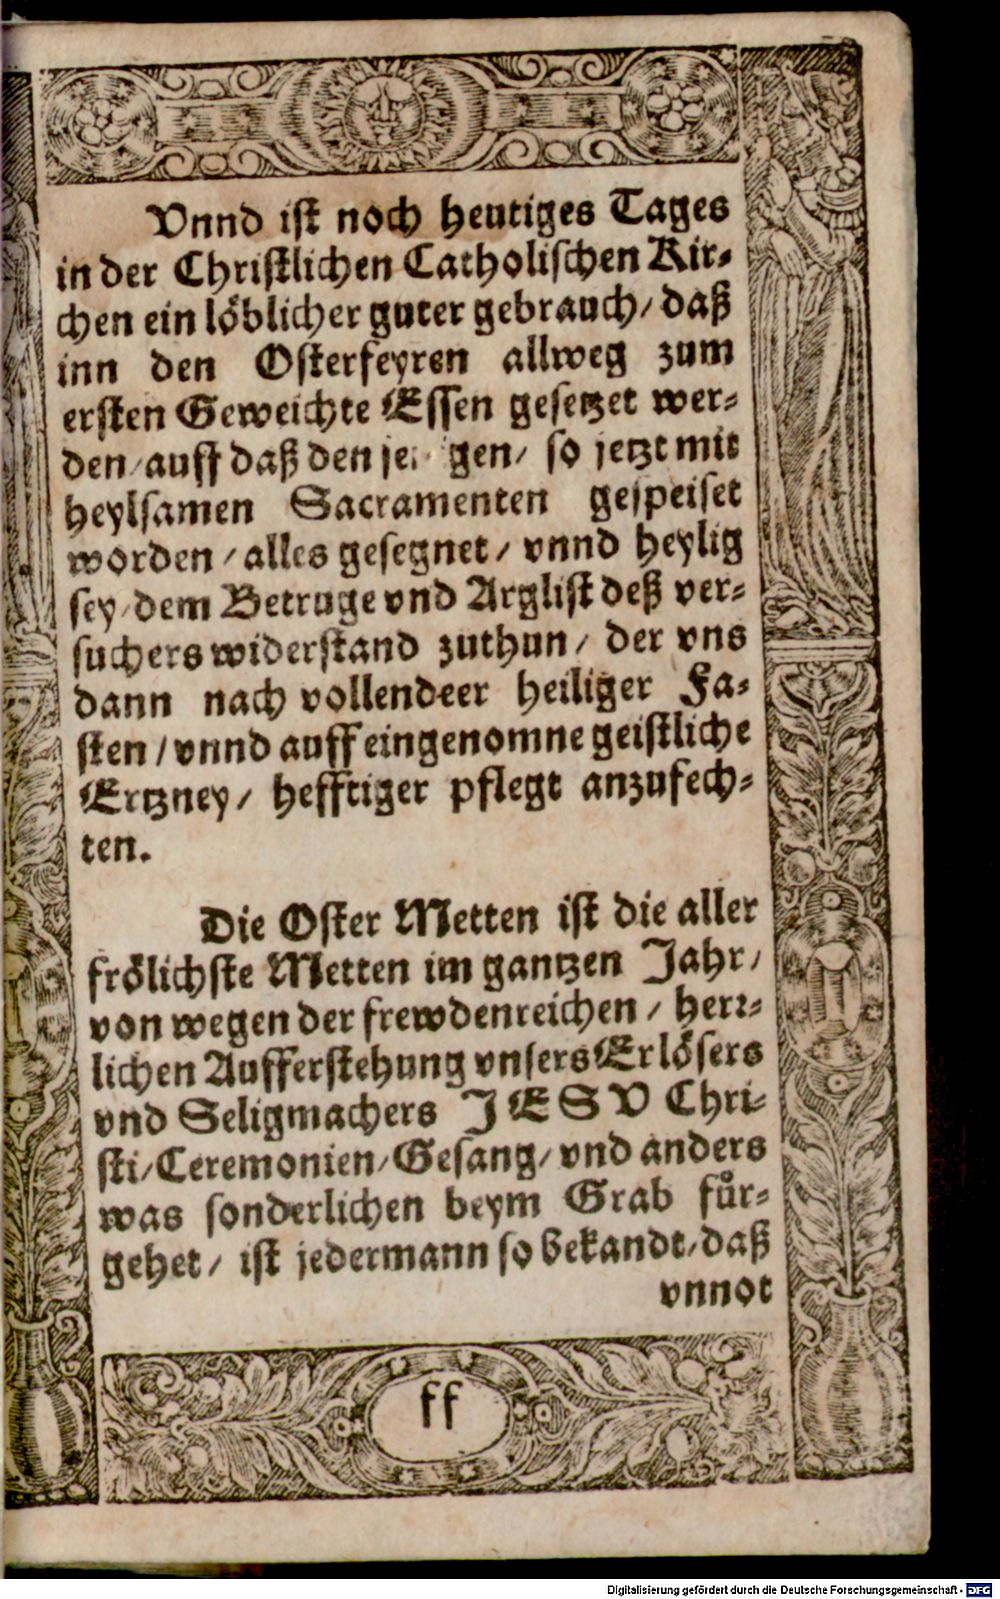 Vnnd ist noch heutiges Tages
in der Christlichen Catholischen Kir-
chen ein löblicher guter gebrauch/ daß
inn den Osterfeyren allweg zum
ersten Geweichte Essen gesetzet wer-
den/ auff daß den so jetzt mit
heylsamen Sacramenten gespeiset
worden/ alles gesegnet/ vnnd heylig
sey/ dem Betruge vnd Arglist deß ver-
suchers widerstand zuthun/ der vns
dann nach vollendeer heiliger Fa-
sten/ vnnd auff eingenomne geistliche
Ertzney/ hefftiger pflegt anzufech-
ten.
Die Oster Metten ist die aller
frölichste Metten im gantzen Jahr/
von wegen der frewdenreichen/ herr-
lichen Aufferstehung vnsers Erlösers
vnd Seligmachers JESV Chri-
sti/ Ceremonien/ Gesang/ vnd anders
was sonderlichen beym Grab fůr-
gehet/ ist jedermann so bekandt/ daß
vnnot
ff
Digitalisierung gefördert durch die Deutsche Forschungsgemeinschaft - DFG